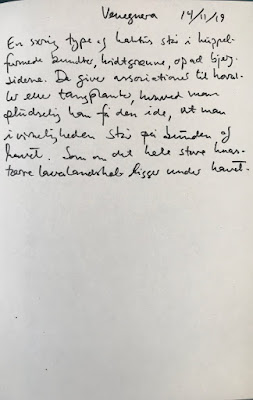 Veneguera 14/11/19
En særlig type af kaktus står i knippel-
formede bundter, hvidtgrønne, op ad bjerg-
siderne. De giver associationer til koral-
ler eller tangplanter, hvorved man
pludselig kan få den ide, at man
i virkeligheden står på bunden af
havet. Som om det hele store knas-
tørre lavalandskab ligger under havet.